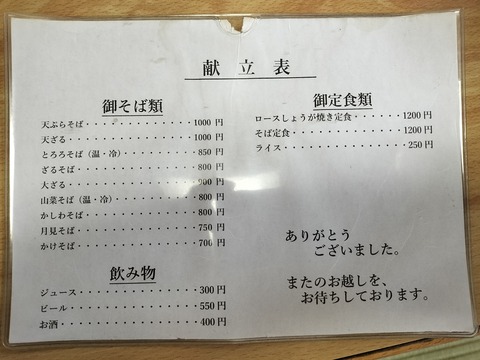 献立表
御そば類
天ぷらそば・・・・・・・・・・・1000円
天ざる・・・・・・・・・・・・・1000円
とろろそば（温・冷）・・・・・・・850円
ざるそば・・・・・・・・・・・・・800円
大ざる・・・・・・・・・・・・・・900円
山菜そば（温・冷）・・・・・・・・800円
かしわそば・・・・・・・・・・・・800円
月見そば・・・・・・・・・・・・・750円
かけそば・・・・・・・・・・・・・700円
飲み物
ジュース・・・・・・・・・・・・・300円
ビール・・・・・・・・・・・・・・550円
お酒・・・・・・・・・・・・・・・400円
御定食類
ロースしょうが焼き定食・・・・・・・1200円
そば定食・・・・・・・・・・・・・・1200円
ライス・・・・・・・・・・・・・・・250円
ありがとう
ございました。
またのお越しを、
お待ちしております。